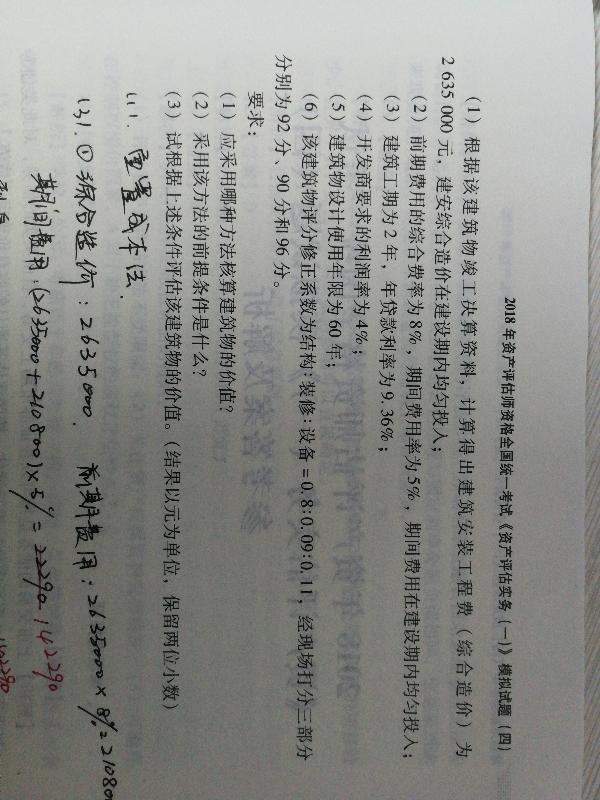 2018年资产评估师资格全国统一考试《资产评估实务（一）》模拟试题（四）
（1）根据该建筑物竣工决算资料，计算得出建筑安装工程费（综合造价）为
2 635 000元，建安综合造价在建设期内均匀投入；
（2）前期费用的综合费率为8%，期间费用率为5%，期间费用在建设期内均匀投入；
（3）建筑工期为2年，年贷款利率为9.36%；
（4）开发商要求的利润率为4%；
（5）建筑物设计使用年限为60年；
（6）该建筑物评分修正系数为结构:装修:设备=0.8:0.09:0.11，经现场打分三部分
分别为92分、90分和96分。
要求：
（1）应采用哪种方法核算建筑物的价值？
（2）采用该方法的前提条件是什么？
（3）试根据上述条件评估该建筑物的价值。（结果以元为单位，保留两位小数）
(1). 重置成本法.
(3). ①综合造价：2635000. 前期费用：2635000×8%=21080
期间费用：(2635000+210800)×5%=22290 142290
142290